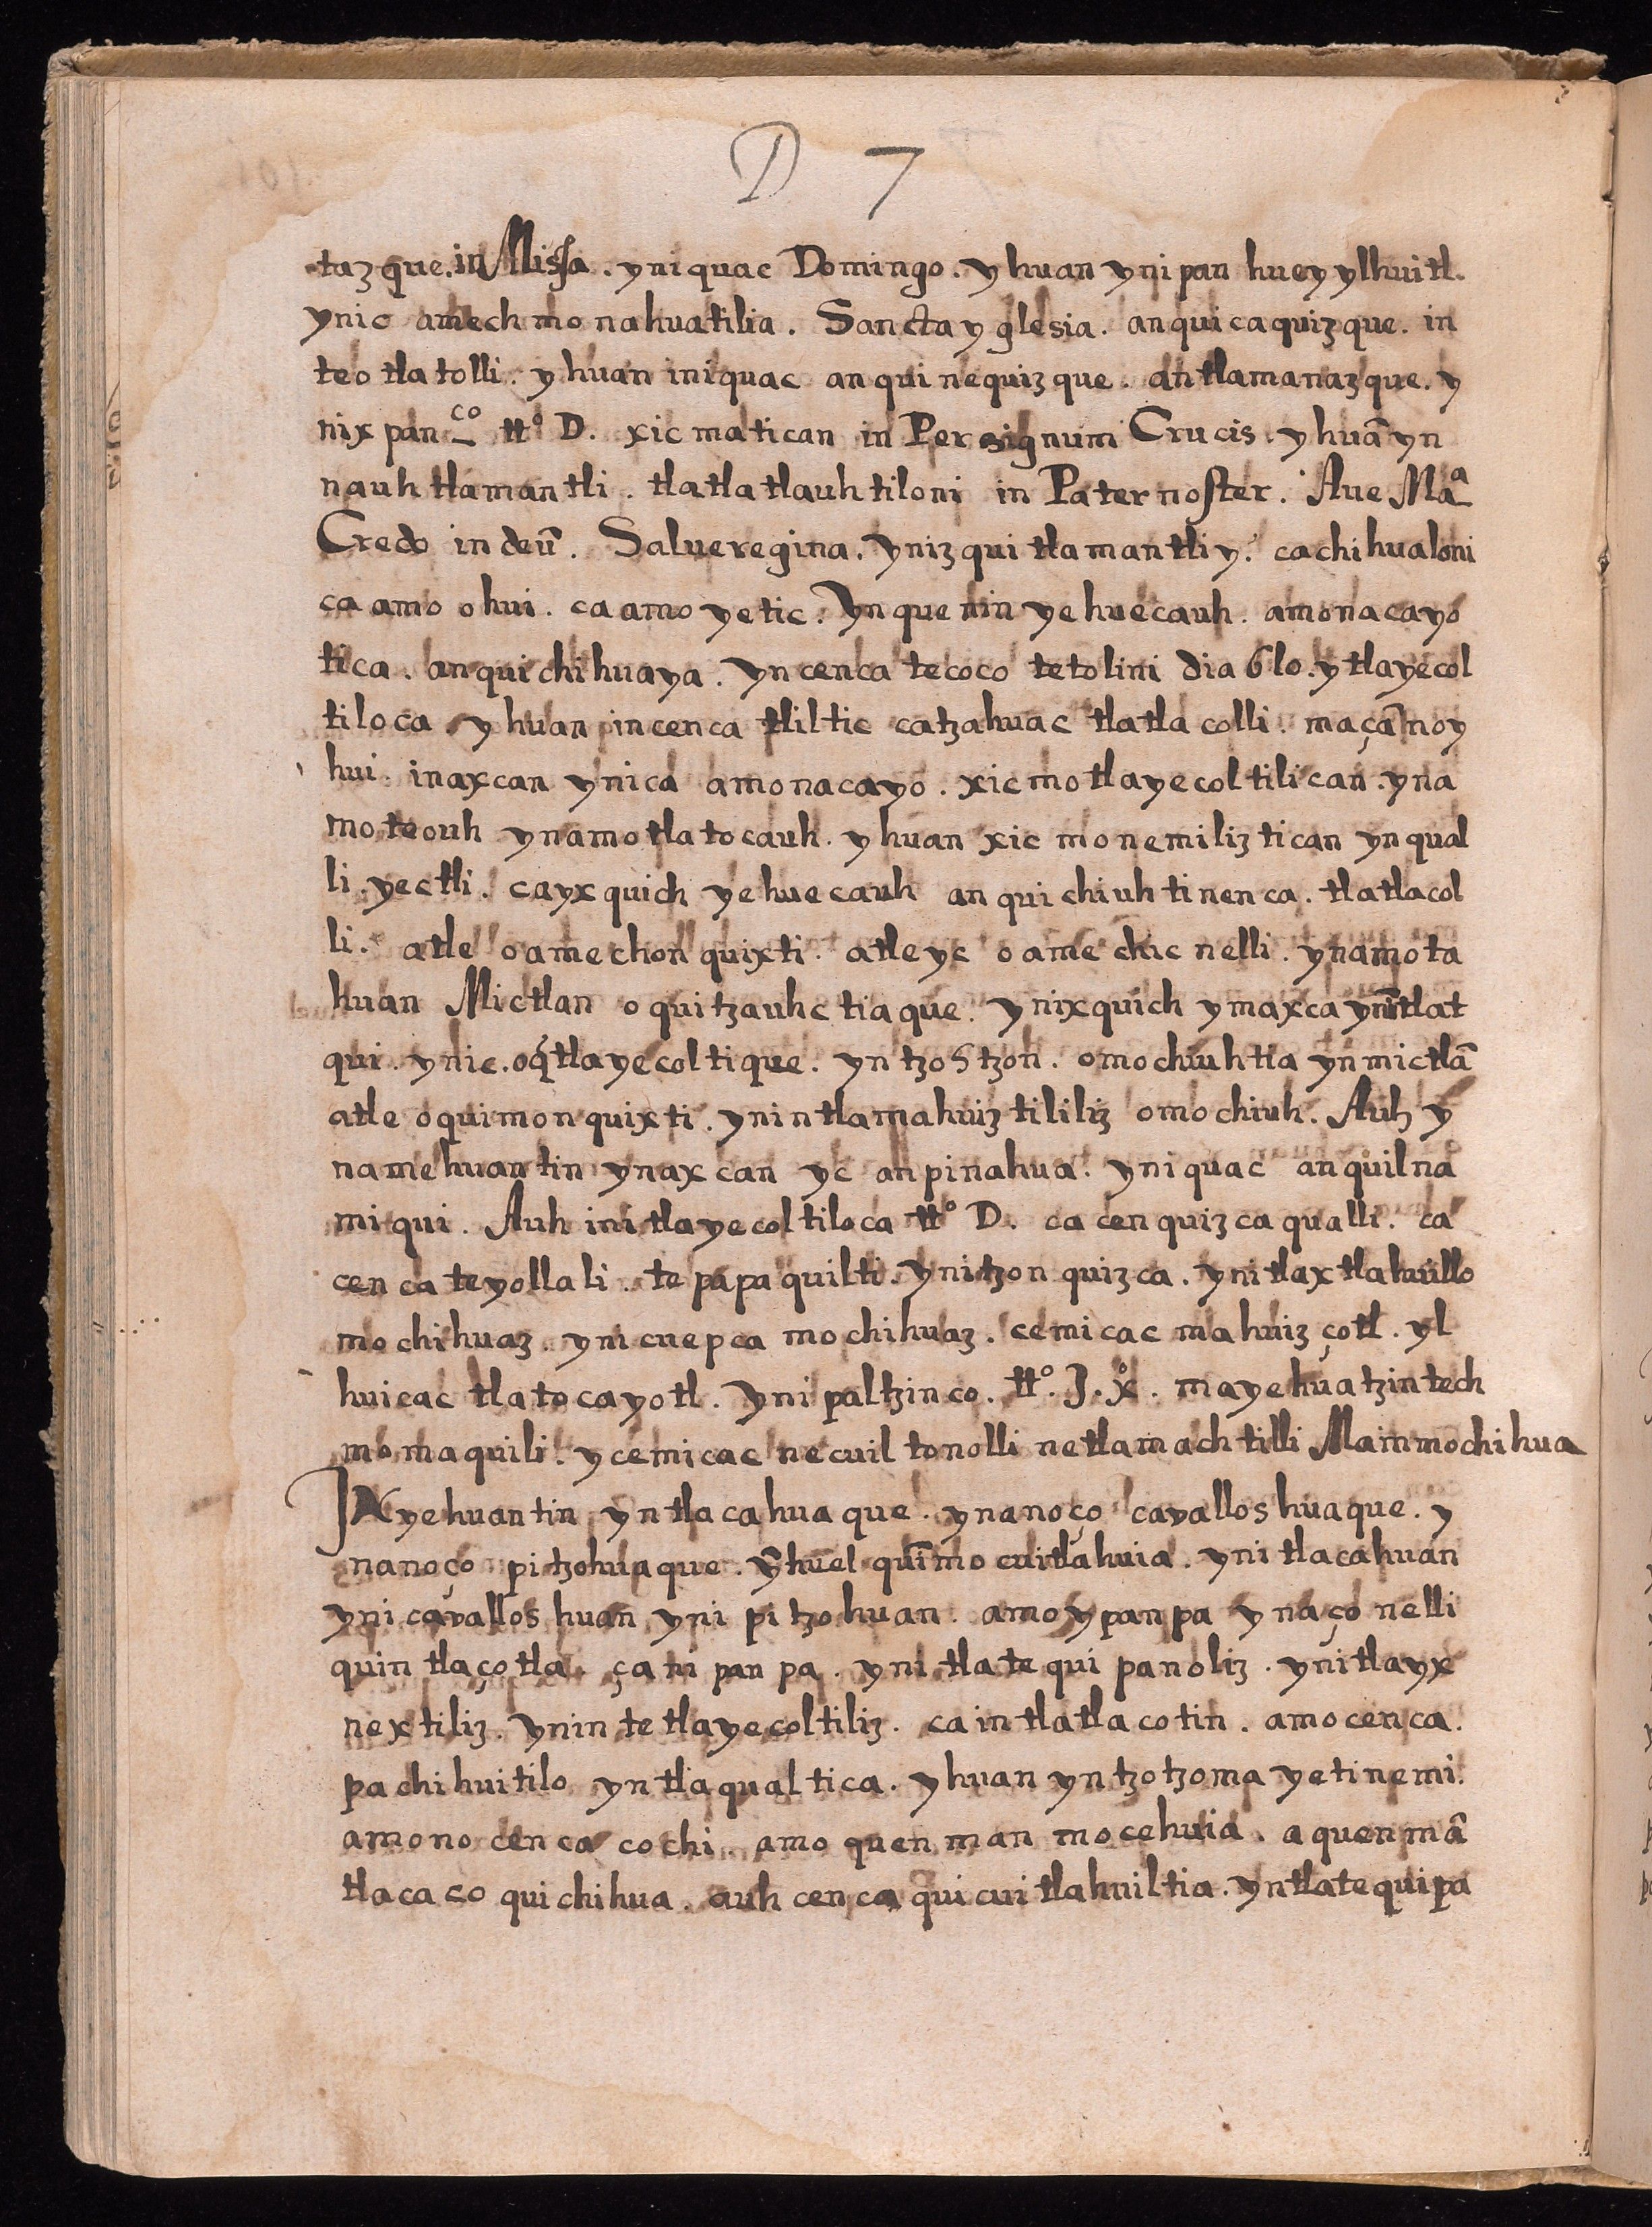 D 7
tazque. in Missa. yniquac Domingo. yhuan ynipan huey ylhuitl.
ynic amechmonahuatilia. Sancta yglesia. anquicaquizque. in
teotlatolli. yhuan iniquac anquinequizque. antlamanazque. y
nixpantzco tto D. xicmatican in Per signum Crucis. yhuā yn
nauhtlamantli. tlatlatlauhtiloni in Pater noster. Aue Ma
Credo in deū. Salueregina. ynizquitlamantli y. cachihualoni
ca amo ohui. ca amo yetic. Yn quenin yehuecauh. amonacayo
tica. anquichihuaya. yn cenca tecoco tetolini diablo. ytlayecol
tiloca yhuan in cenca tliltic catzahuac tlatlacolli. maçā no y
hui. inaxcan ynica amonacayo. xicmotlayecoltilican. yna
moteouh ynamotlatocauh. yhuan xicmonemiliztican ynqual
li. yectli. cayxquich yehuecauh anquichiuhtinenca. tlatlacol
li. atle oamechonquixti. atle yc oamechicnelli. ynamota
huan Mictlan oquitzauhctiaque. ynixquich ymaxca ynītlat
qui. ynic. oq́tlayecoltique. yn tzotzon. omochiuhtia yn mictlā
atle oquimonquixti. ynintlamahuiztililiz omochiuh. Auh y
namehuantin ynaxcan yc anpinahua. yniquac anquilna
miqui. Auh initlayecoltiloca tto D. ca cenquizca qualli. ca
cenca teyollali. tepapaquilti. ynitzonquizca. ynitlaxtlahuillo
mochihuaz. ynicuepca mochihuaz. cemicac mahuizçotl. yl
huicac tlatocayotl. Ynipaltzinco. tto. J. xo. mayehuatzin tech
momaquili. ycemicac necuiltonolli netlamachtilli Mammochihua
IN yehuantin yntlacahuaque. ynanoço cavalloshuaque. y
nanoço pitzohuaque. ỹhuel quīmocuitlahuia. ynitlacahuan
ynicavalloshuan ynipitzohuan. amo ypanpa ynaço nelli
quintlaçotla. çanipanpa. ynitlatequipanoliz. ynitlayx
nextiliz. ynintetlayecoltiliz. ca in tlatlacotin. amo cenca.
pachihuitilo yntlaqualtica. yhuan yntzotzoma yetinemi.
amo no cenca cochi. amo quenman mocehuia. aquenmā
tlacaco quichihua. auh cenca quicuitlahuiltia. yntlatequipa